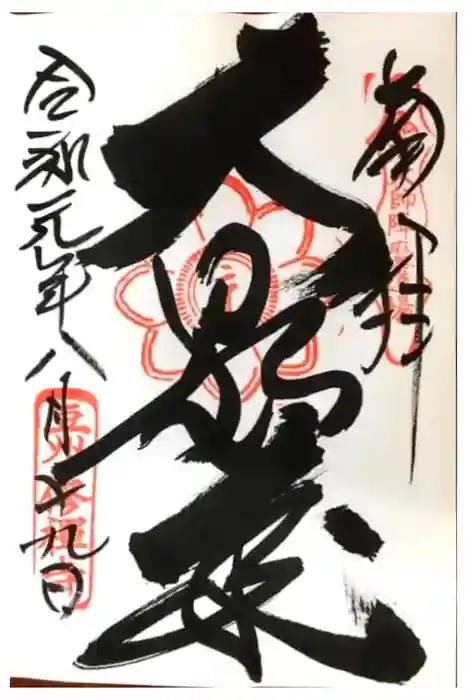 奉拝
大日如来
令和元年八月十九日